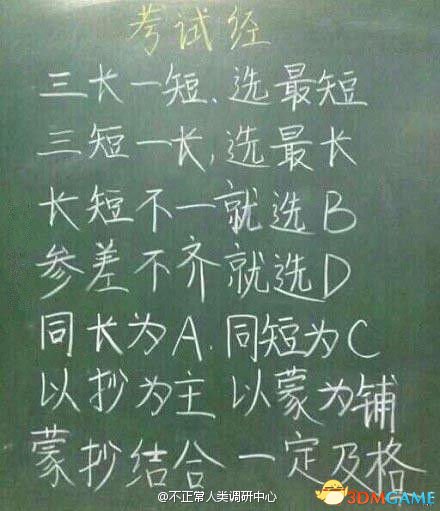 考试经
三长一短.选最短
三短一长,选最长
长短不一就选B
参差不齐就选D
同长为A.同短为C
以抄为主 以蒙为铺
蒙抄结合 一定及格
@不正常人类调研中心
3DMGAME